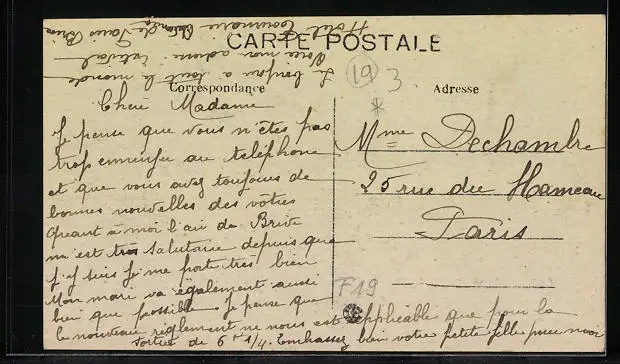 CARTE POSTALE
Correspondance
Adresse
19
3
Chère Madame
Je pense que vous n'êtes pas
trop ennuyée au téléphone
et que vous avez toujours de
bonnes nouvelles des votres
Quant à moi l'air de Brive
m'est très salutaire depuis que
j'y suis je me porte très bien
Mon mari va également aussi
bien que possible. Je pense que
le nouveau règlement ne nous est applicable que pour la
sortie de 6h 1/4. Embrassez bien votre petite fille pour moi
Le bonjour à tout le monde
Voici mon adresse
Hotel de Paris Brive
Mme Dechambre
25 rue du Hameau
Paris
F19